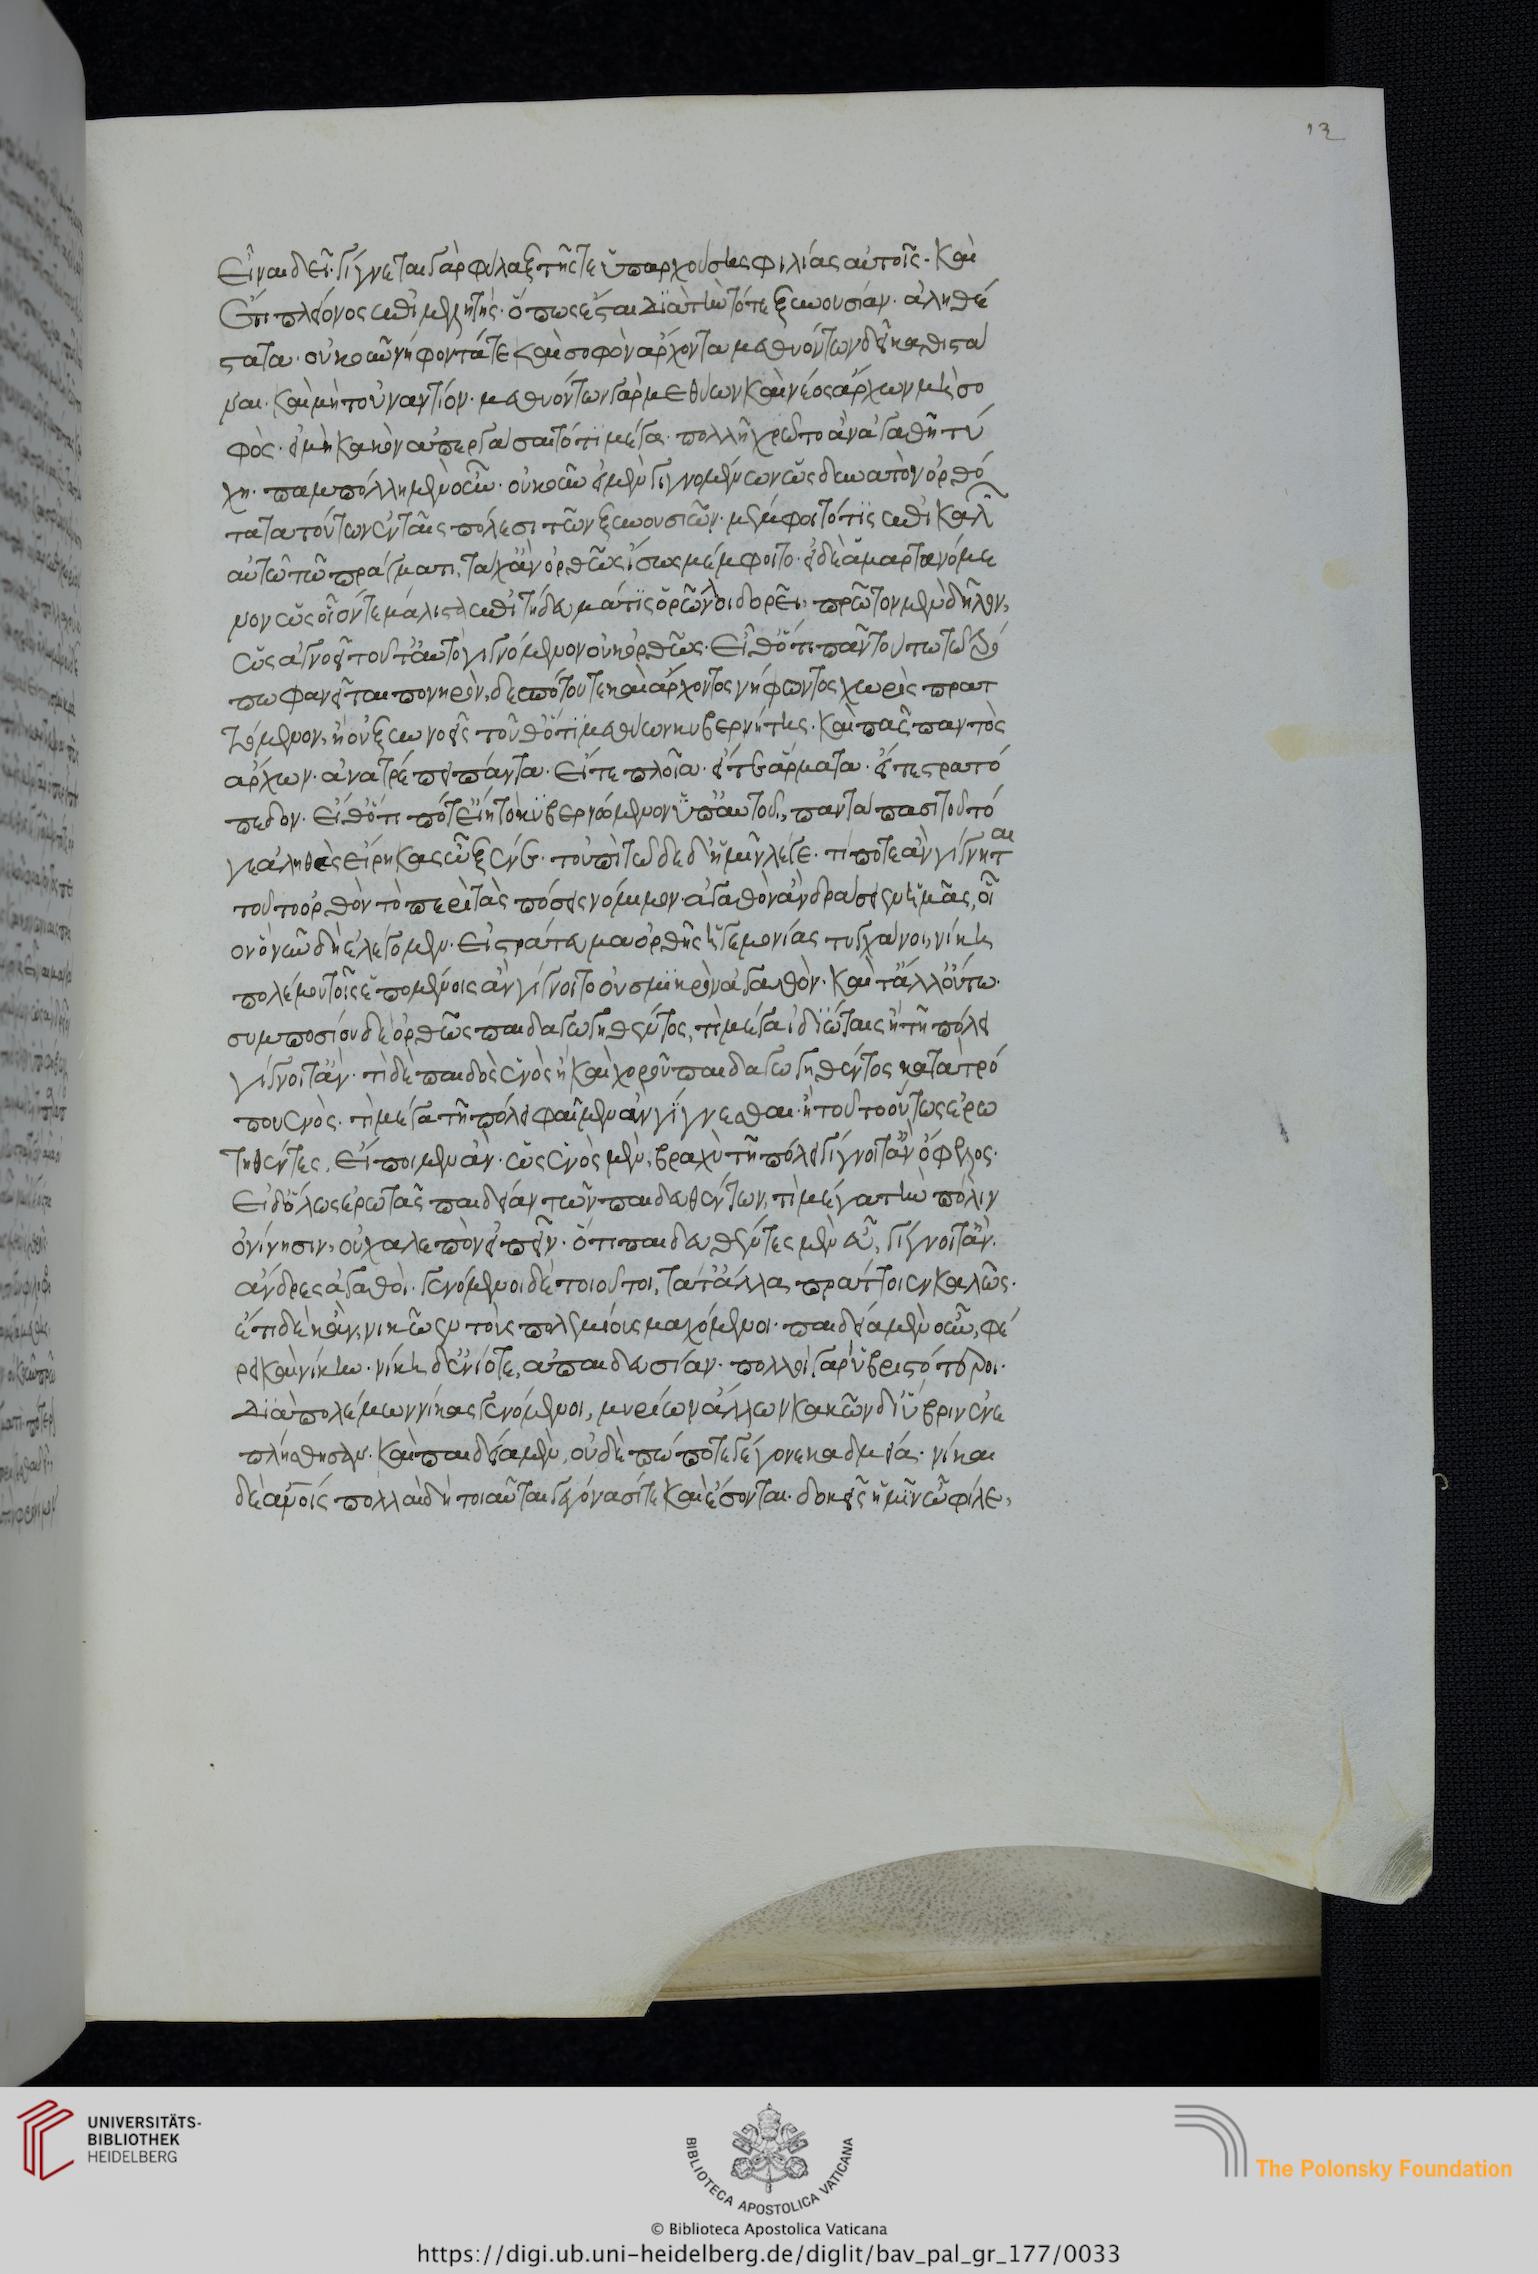 12
εἶναι δεῖ. γίγνεται γὰρ φύλαξ τῆς τε ὑπαρχούσης φιλίας αὐτοῖς. καὶ
ἔτι πλέονος ἐπιμελητής. ὅπως ἔσται διὰ τὴν τότε ξυνουσίαν. ἀληθέ
στατα. οὐκοῦν νήφοντά τε καὶ σοφὸν ἄρχοντα μεθυόντων δεῖ καθιστά
ναι. καὶ μὴ τοὐναντίον. μεθυόντων γὰρ μεθύων καὶ νέος ἄρχων μὴ σο
φὸς. εἰ μὴ κακὸν ἀπεργάσαιτό τι μέγα. πολλῇ χρῷτο ἂν ἀγαθῇ τύ
χῃ. παμπόλλῃ μὲν οὖν. οὐκοῦν εἰ μὲν γιγνομένων ὡς δυνατὸν ὀρθό
τατα τούτων ἐν ταῖς πόλεσι τῶν ξυνουσιῶν. μέμφοιτό τις ἐπικαλῶν
αὐτῷ τῷ πράγματι, τάχ' ἂν ὀρθῶς ἴσως μέμφοιτο. εἰ δὲ ἁμαρτανόμε
νον ὡς οἷόν τε μάλιστα ἐπιτήδευμά τις ὁρῶν λοιδορεῖ, πρῶτον μὲν δῆλον,
ὡς ἀγνοεῖ τοῦτ' αὐτὸ γιγνόμενον οὐκ ὀρθῶς. εἶθ' ὅτι πᾶν τούτῳ τῷ τρό
πῳ φανεῖται πονηρὸν, δεσπότου τε καὶ ἄρχοντος νήφοντος χωρὶς πρατ
τόμενον, ἢ οὐ ξυννοεῖς τοῦθ' ὅτι μεθύων κυβερνήτης. καὶ πᾶς παντὸς
ἄρχων. ἀνατρέπει πάντα. εἴτε πλοῖα. εἴτε ἅρματα. εἴτε στρατό
πεδον. εἴθ' ὅτι ποτ' εἴη τὸ κυβερνώμενον ὑπ' αὐτοῦ, παντάπασι τοῦτό
γε ἀληθὲς εἴρηκας ὦ ξένε. τοὐπὶ τῷδε δ' ἡμῖν λέγε. τί ποτε ἂν γίγνηται
τοῦτο ὀρθὸν τὸ περὶ τὰς πόσεις νόμιμον ἀγαθὸν ἂν δράσειεν ἡμᾶς, οἷ
ον ὃ νῦν δὴ ἐλέγομεν. εἰ στράτευμα ὀρθῆς ἡγεμονίας τυγχάνοι, νίκη
πολέμου τοῖς ἑπομένοις ἂν γίγνοιτο οὐ σμικρὸν ἀγαθὸν. καὶ τἄλλ' οὕτω.
συμποσίου δὲ ὀρθῶς παιδαγωγηθέντος, τί μέγα ἰδιώταις ἢ τῇ πόλει
γίγνοιτ' ἂν. τί δὲ παιδὸς ἑνὸς ἢ καὶ χοροῦ παιδαγωγηθέντος κατὰ τρό
πον ἑνὸς. τί μέγα τῇ πόλει φαῖμεν ἂν γίγνεσθαι. ἢ τοῦτο οὕτως ἐρω
τηθέντες, εἴποιμεν ἂν. ὡς ἑνὸς μὲν, βραχὺ τῇ πόλει γίγνοιτ' ἂν ὄφελος.
εἰ δ' ὅλως ἐρωτᾷς παιδείαν τῶν παιδευθέντων, τί μέγα τὴν πόλιν
ὀνίνησιν, οὐ χαλεπὸν εἰπεῖν. ὅτι παιδευθέντες μὲν εὖ, γίγνοιντ' ἂν.
ἄνδρες ἀγαθοὶ. γενόμενοι δὲ τοιοῦτοι, τά τ' ἄλλα πράττοιεν καλῶς.
ἔτι δὲ κἂν, νικῷεν τοὺς πολεμίους μαχόμενοι. παιδεία μὲν οὖν, φέ
ρει καὶ νίκην. νίκη δ' ἐνίοτε, ἀπαιδευσίαν. πολλοὶ γὰρ ὑβριστότεροι.
διὰ πολέμων νίκας γενόμενοι, μυρίων ἄλλων κακῶν δι' ὕβριν ἐνε
πλήσθησαν. καὶ παιδεία μὲν, οὐδὲ πώποτε γέγονε καδμεία. νῖκαι
δὲ ἀνθρώποις πολλαὶ δὴ τοιαῦται γεγόνασί τε καὶ ἔσονται. δοκεῖς ἡμῖν ὦ φίλε,
UNIVERSITÄTS-
BIBLIOTHEK
HEIDELBERG
BIBLIOTECA APOSTOLICA VATICANA
The Polonsky Foundation
© Biblioteca Apostolica Vaticana
https://digi.ub.uni-heidelberg.de/diglit/bav_pal_gr_177/0033